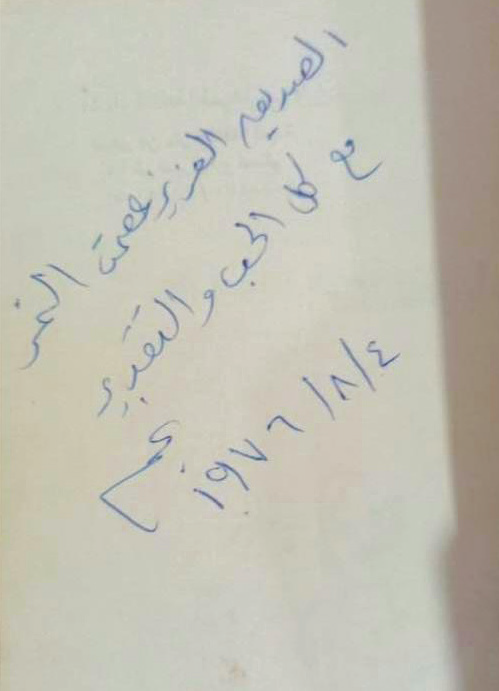 الصديق العزيز عصمت النمر
مع كل الحب والتقدير
١٩٧٦/٨/٤